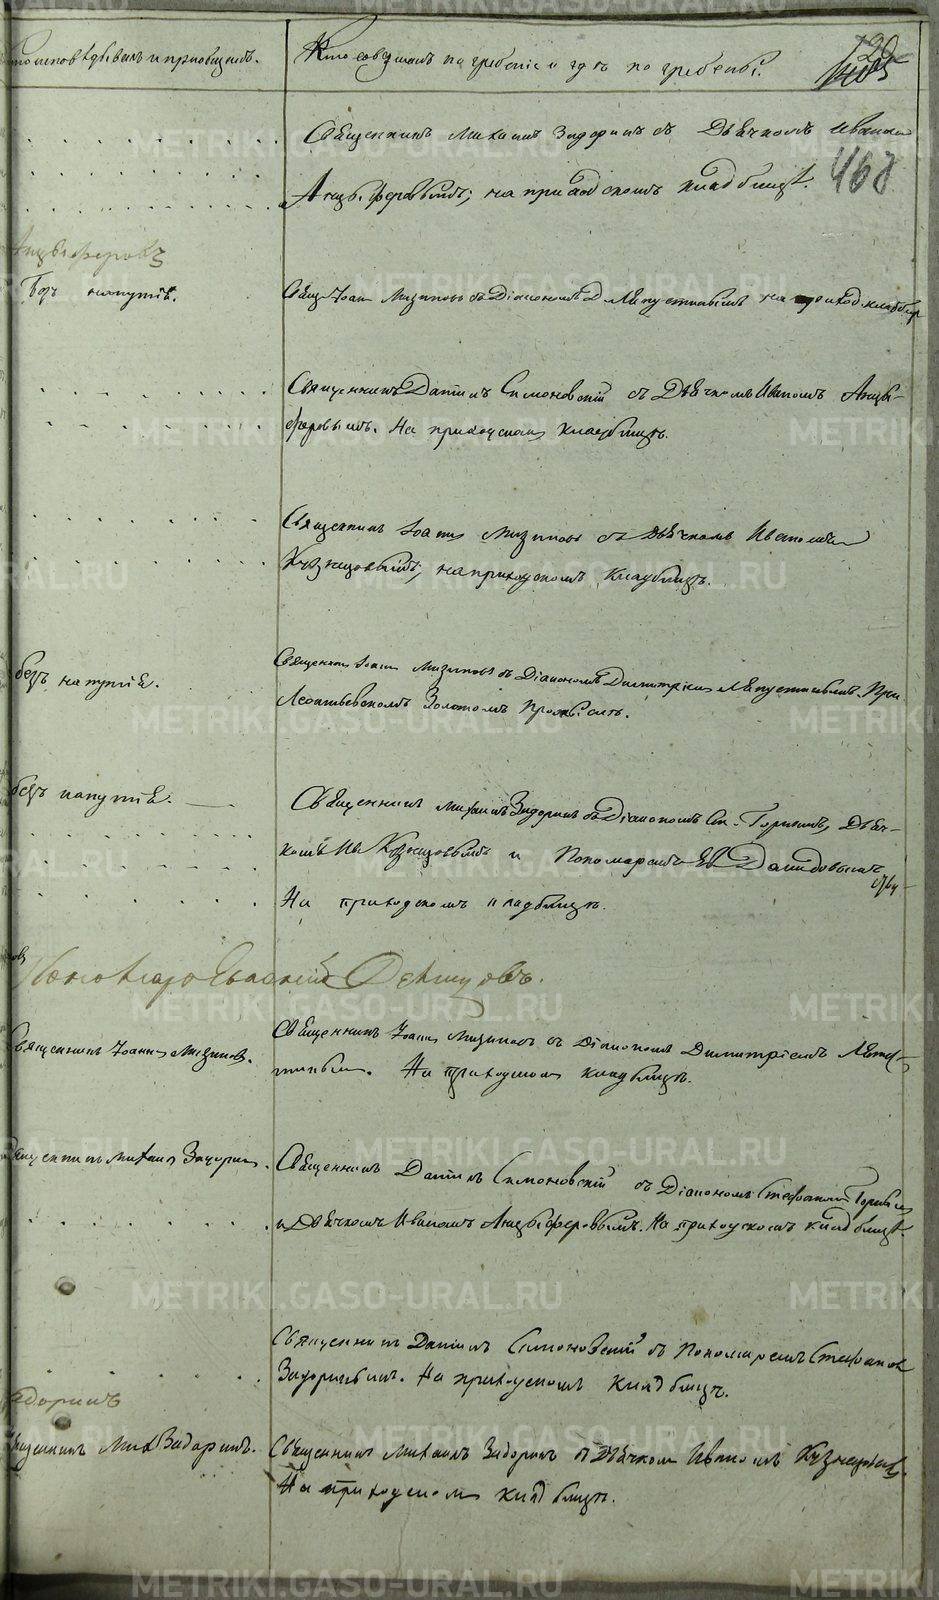 исповѣдывалъ и пріобщалъ.
Кто совершалъ погребеніе и гдѣ погребены.
468
Священникъ Михаилъ Задоринъ съ Дьячкомъ Иваномъ
Анцыферовымъ; на приходскомъ кладбищѣ.
Анцыферовъ
Безъ напутія.
Свящ. Іоаннъ Мизиновъ съ Діакономъ Д. Лепустинымъ на приход. кладбищ
Священникъ Даніилъ Симоновскій съ Дьячкомъ Иваномъ Анцы-
феровымъ. На приходскомъ кладбищѣ.
Священникъ Іоаннъ Мизиновъ съ дьячкомъ Иваномъ
Кузнецовымъ; на приходскомъ кладбищѣ.
безъ напутія.
Священникъ Іоаннъ Мизиновъ съ Діакономъ Димитріемъ При
Леонтьевскомъ Золотомъ Пріискѣ.
безъ напутія.
Священникъ Михаилъ Задоринъ съ Діакономъ Ст. Горнымъ, Дьяч-
комъ Ив. Кузнецовымъ и Пономаремъ Ев. Давидовымъ
На приходскомъ кладбищѣ.
Священникъ Іоаннъ Мизиновъ.
Священникъ Іоаннъ Мизиновъ съ Діакономъ Димитріемъ
На приходскомъ кладбищѣ.
Священникъ Михаилъ Задоринъ.
Священникъ Даніилъ Симоновскій съ Діакономъ Стефаномъ
и Дьячкомъ Иваномъ Анцыферовымъ. На приходскомъ кладбищѣ.
Священникъ Даніилъ Симоновскій съ Пономаремъ Стефаномъ
Задоринымъ. На приходскомъ кладбищѣ.
Задоринъ
Священникъ Мих. Задоринъ.
Священникъ Михаилъ Задоринъ съ Дьячкомъ Иваномъ Кузнецовымъ.
На приходскомъ кладбищѣ.
METRIKI.GASO-URAL.RU